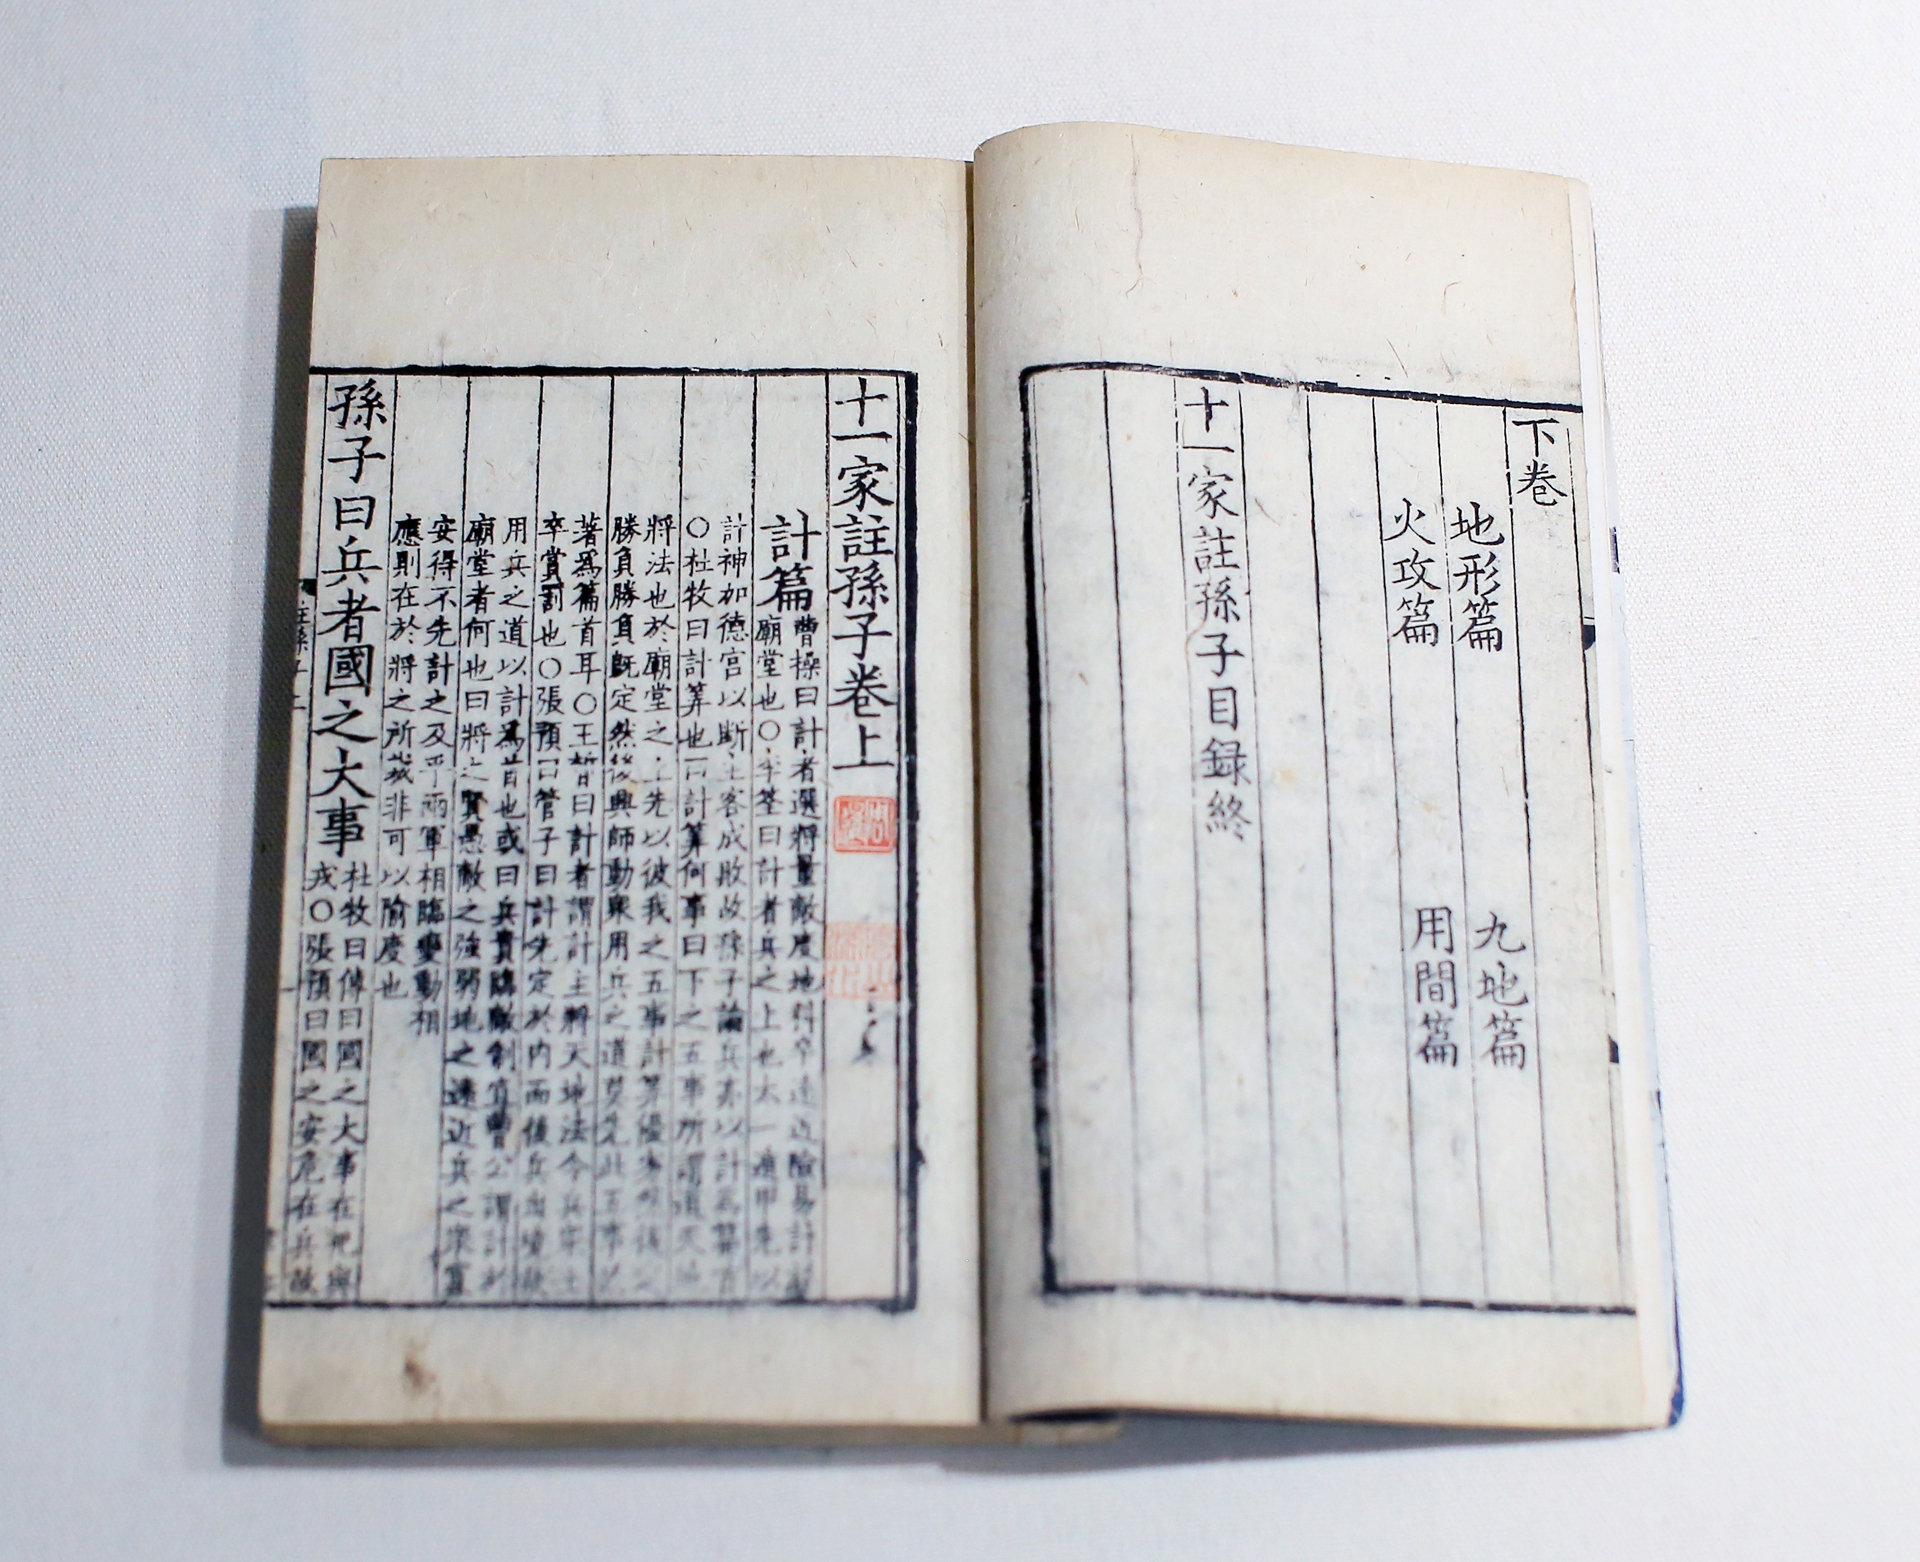 下卷
地形篇 九地篇
火攻篇 用間篇
十一家註孫子目録終
十一家註孫子卷上
計篇
曹操曰計者選將量敵度地料卒遠近險易計於
廟堂也○李筌曰計者兵之上也太一遁甲先以
計神加德宮以斷主客成敗故孫子論兵亦以計爲篇首
○杜牧曰計算也曰計算何事曰下之五事所謂道天地
將法也於廟堂之上先以彼我之五事計算優劣然後定
勝負勝負既定然後興師動衆用兵之道莫先此五事故
著爲篇首耳○王晳曰計者謂計主將天地法令兵衆士
卒賞罰也○張預曰管子曰計先定於內而後兵出境故
用兵之道以計爲首也或曰兵貴臨敵制宜曹公謂計於
廟堂者何也曰將之賢愚敵之強弱地之遠近兵之衆寡
安得不先計之及乎兩軍相臨變動相
應則在於將之所裁非可以隃度也
孫子曰兵者國之大事
杜牧曰傳曰國之大事在祀與
戎○張預曰國之安危在兵故
註孫子上